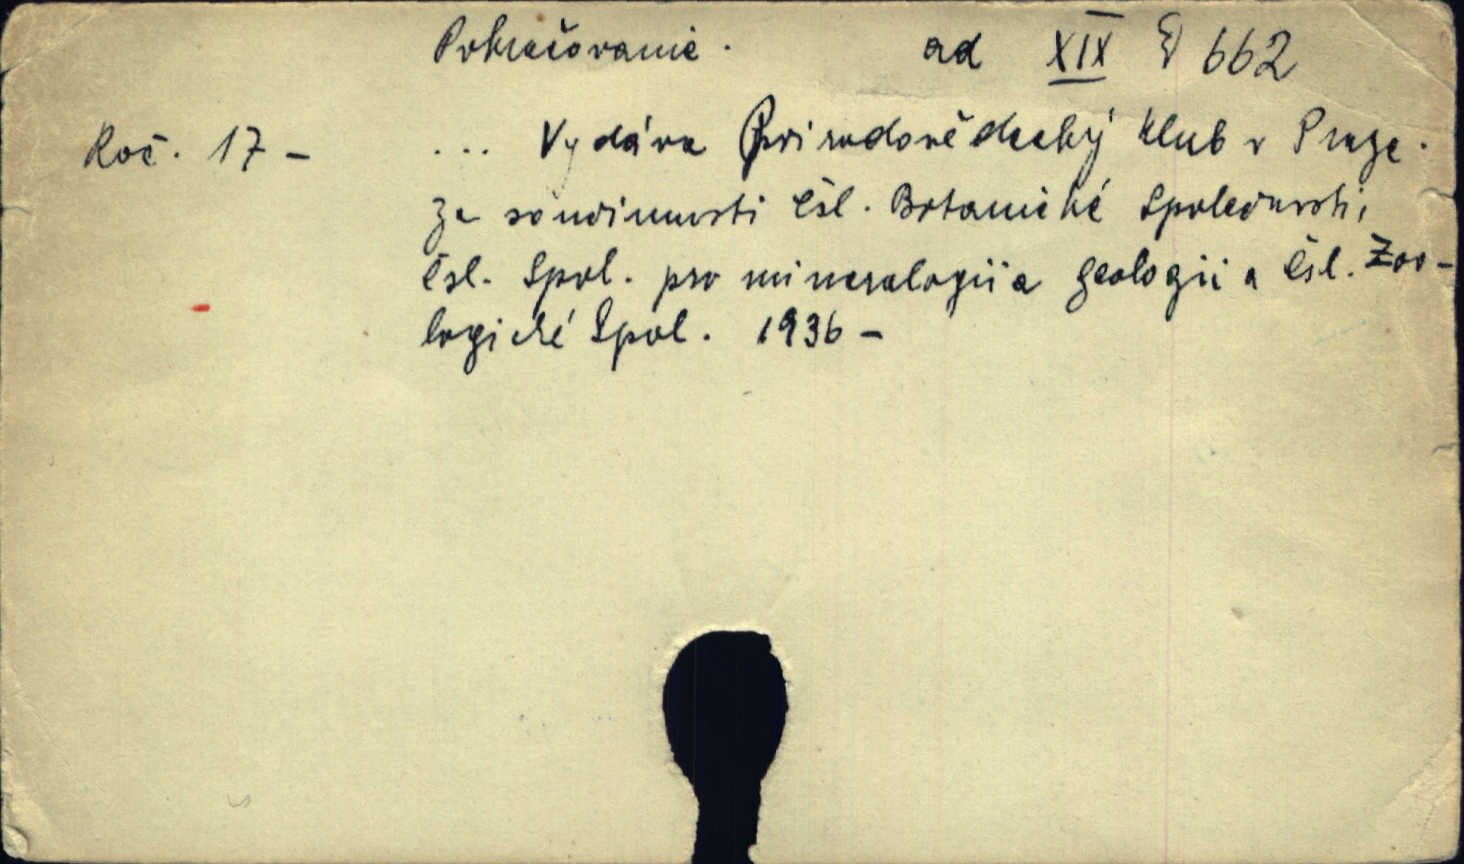 Pokračovanie. ad XIX E 662
Roč. 17 - ... Vydáva Prirodovědecký klub v Praze.
Za součinnosti Čsl. Botanické Společnosti,
Čsl. Spol. pro mineralogii a geologii a Čsl. Zoo-
logické Spol. 1936 -